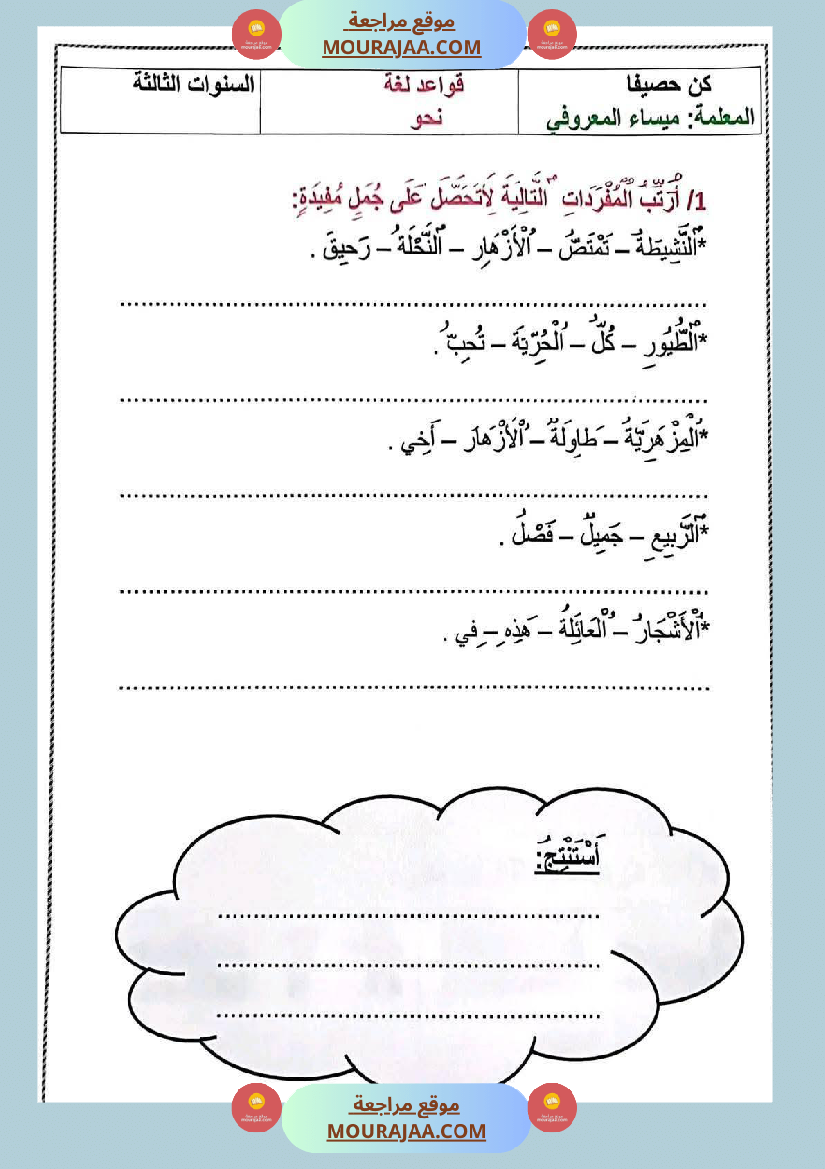 موقع مراجعة
MOURAJAA.COM
كن حصيفا
المعلمة: ميساء المعروفي
قواعد لغة
نحو
السنوات الثالثة
1/ أُرَتِّبُ الْمُفْرَدَاتِ التَّالِيَةَ لِأَتَحَصَّلَ عَلَى جُمَلٍ مُفِيَدَةٍ:
*النَّشِيطَةُ – تَمْتَصُّ – الْأَزْهَارِ – النَّحْلَةُ – رَحيِقَ .
*الْطُّيُورِ – كُلُّ – الْحُرِّيَةَ – تُحِبُّ .
*الْمِزْهَرِيَّةُ – طَاوِلَةٌ – الْأَزْهَارَ – أَخِي .
*الْرَّبِيعِ – جَمِيلٌ – فَصْلُ .
*الْأَشْجَارُ – الْعَائِلَةُ – هَذِهِ – فِي .
أَسْتَنْتِجُ:
موقع مراجعة
MOURAJAA.COM